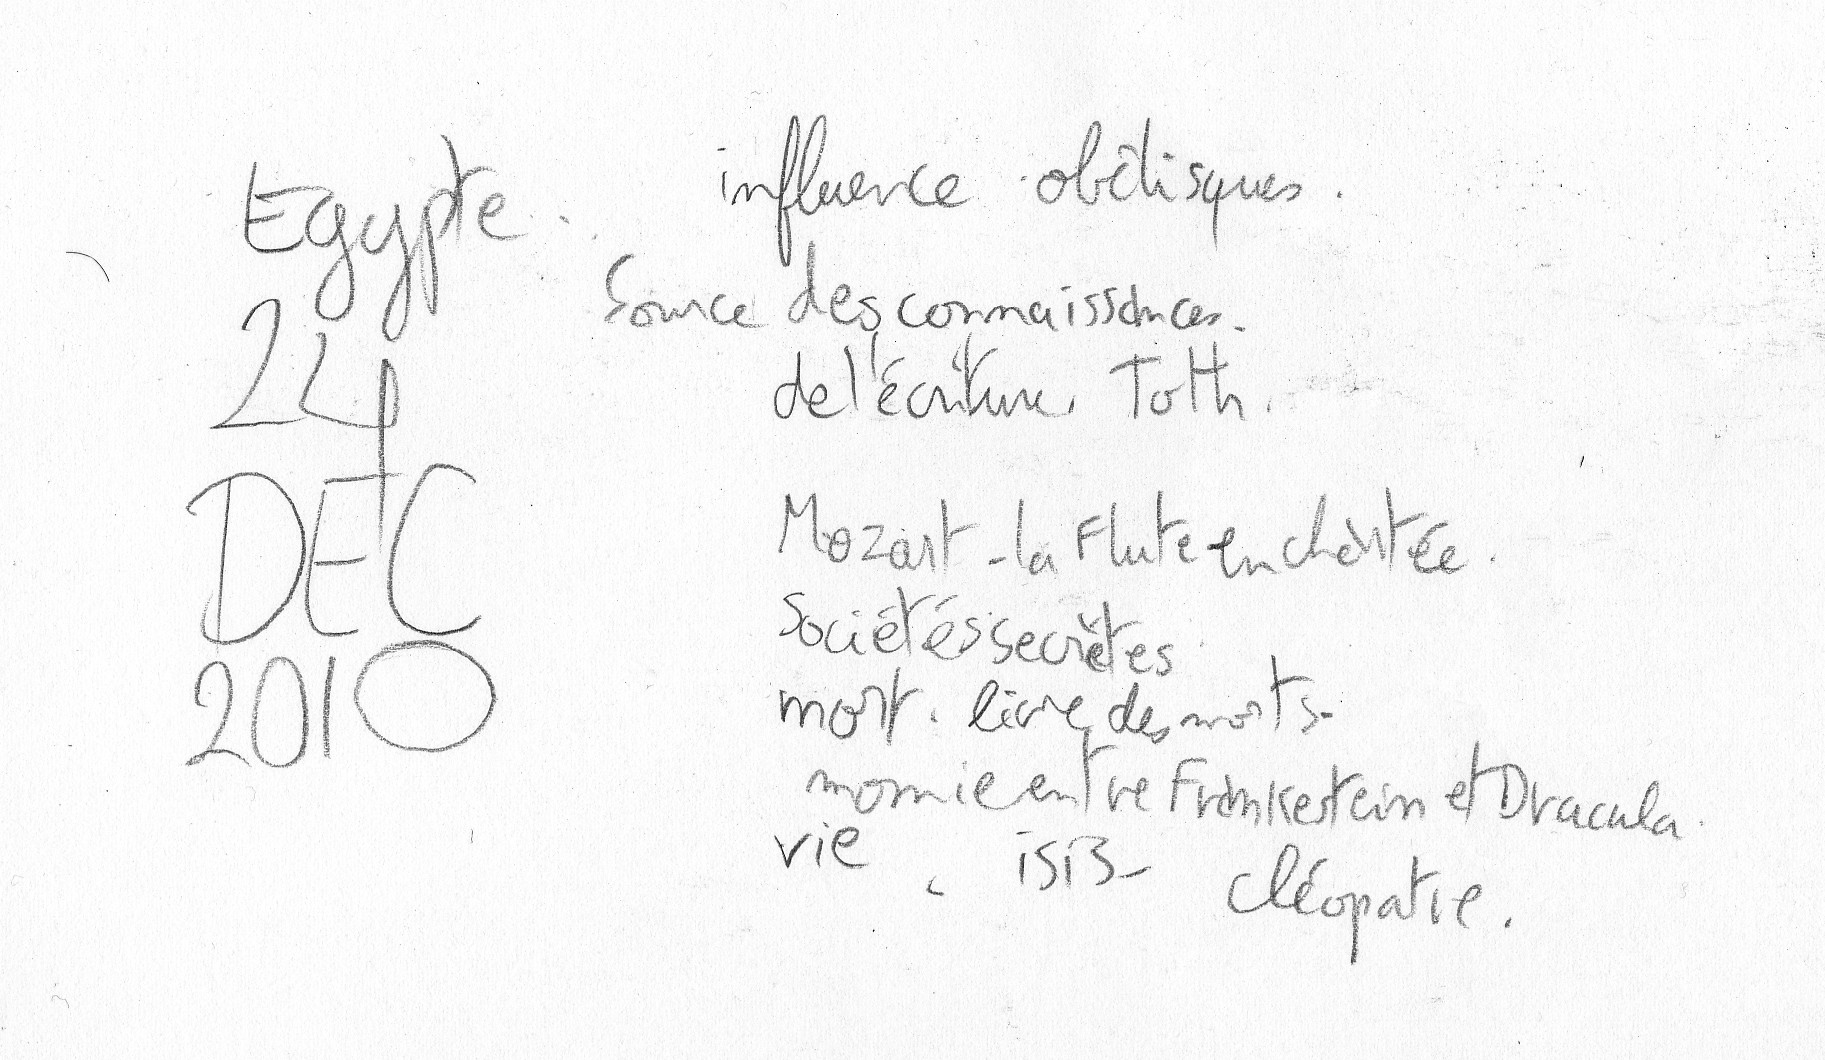 Egypte.
24
DEC
2010
influence obélisques.
Source des connaissances.
de l'écriture. Toth.
Mozart - la Flute enchantée.
Sociétés secrètes
mort. livre des morts.
momie entre Frankestein et Dracula.
vie . isis -
Cléopatre.